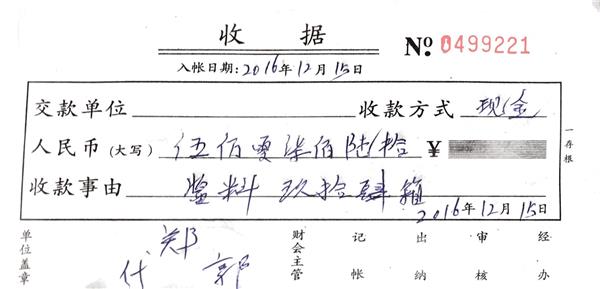 收据
№ 0499221
入帐日期:2016年12月15日
交款单位 收款方式 现金
人民币(大写) 伍佰零柒佰陆拾 ¥
收款事由 酱料 玖拾肆箱
2016年12月15日
一存根
单位盖章
郑
代 郭
财会主管
记帐
出纳
审核
经办